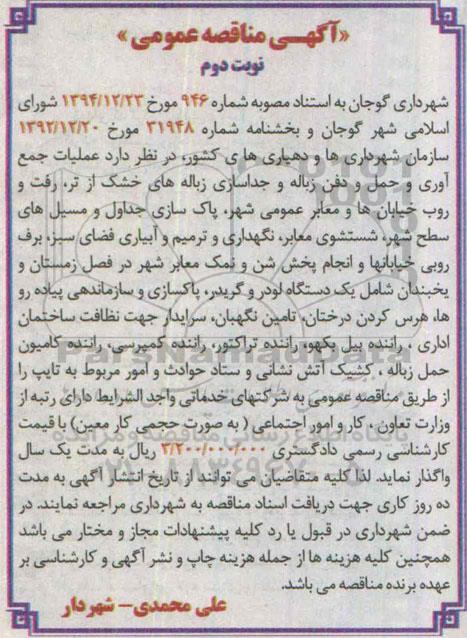 «آگهی مناقصه عمومی»
نوبت دوم
شهرداری گوجان به استناد مصوبه شماره ۹۴۶ مورخ ۱۳۹۴/۱۲/۲۳ شورای
اسلامی شهر گوجان و بخشنامه شماره ۳۱۹۴۸ مورخ ۱۳۹۲/۱۲/۲۰
سازمان شهرداری ها و دهیاری ها ی کشور، در نظر دارد عملیات جمع
آوری و حمل و دفن زباله و جداسازی زباله های خشک از تر، رفت و
روب خیابان ها و معابر عمومی شهر، پاک سازی جداول و مسیل های
سطح شهر، شستشوی معابر، نگهداری و ترمیم و آبیاری فضای سبز، برف
روبی خیابانها و انجام پخش شن و نمک معابر شهر در فصل زمستان و
یخبندان شامل یک دستگاه لودر و گریدر، پاکسازی و ساماندهی پیاده رو
ها، هرس کردن درختان، تامین نگهبان، سرایدار جهت نظافت ساختمان
اداری ، راننده بیل بکهو، راننده تراکتور، راننده کمپرسی، راننده کامیون
حمل زباله ، کشیک آتش نشانی و ستاد حوادث و امور مربوط به تایپ را
از طریق مناقصه عمومی به شرکتهای خدماتی واجد الشرایط دارای رتبه از
وزارت تعاون ، کار و امور اجتماعی ( به صورت حجمی کار معین) با قیمت
کارشناسی رسمی دادگستری ۳/۲۰۰/۰۰۰/۰۰۰ ریال به مدت یک سال
واگذار نماید. لذا کلیه متقاضیان می توانند از تاریخ انتشار آگهی به مدت
ده روز کاری جهت دریافت اسناد مناقصه به شهرداری مراجعه نمایند. در
ضمن شهرداری در قبول یا رد کلیه پیشنهادات مجاز و مختار می باشد
همچنین کلیه هزینه ها از جمله هزینه چاپ و نشر آگهی و کارشناسی بر
عهده برنده مناقصه می باشد.
علی محمدی- شهردار
ParsNamadData
پایگاه اطلاع رسانی مناقصه و مزایده